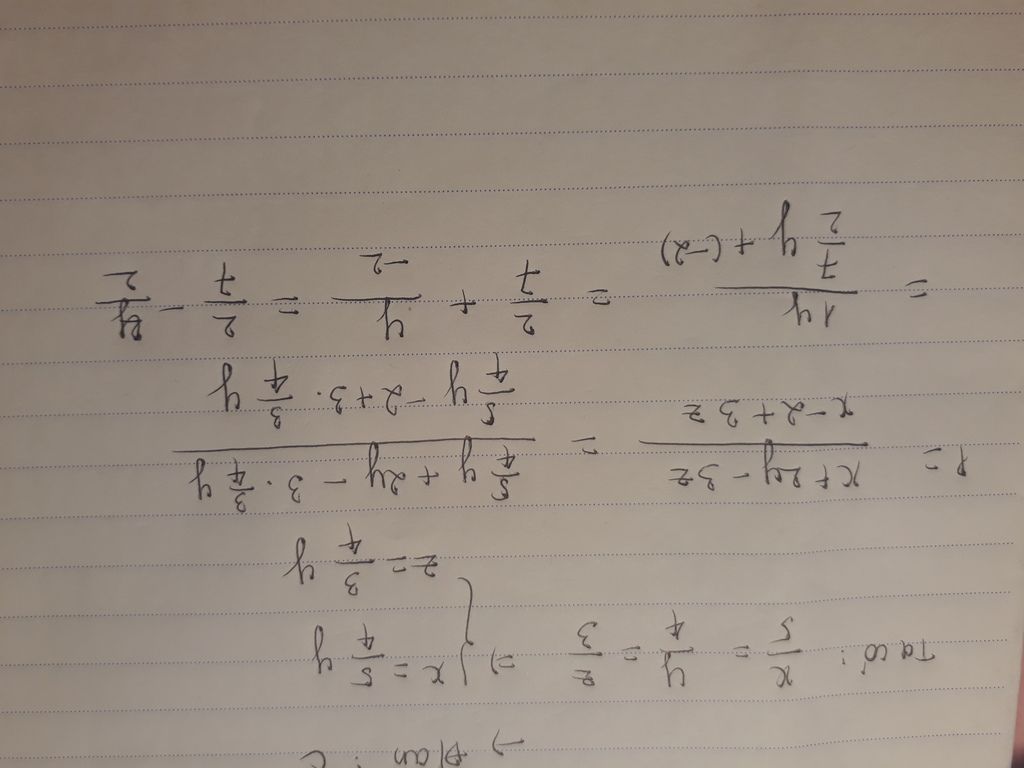 -) Đ/án : C
Ta có : x/5 = y/4 = z/3 =) { x = 5/4 y
z = 3/4 y
P = (x + 2y - 3z)/(x - 2 + 3z) = (5/4 y + 2y - 3 . 3/4 y)/(5/4 y - 2 + 3 . 3/4 y)
= 1y/(7/2 y + (-2)) = 2/7 + y/-2 = 2/7 - y/2